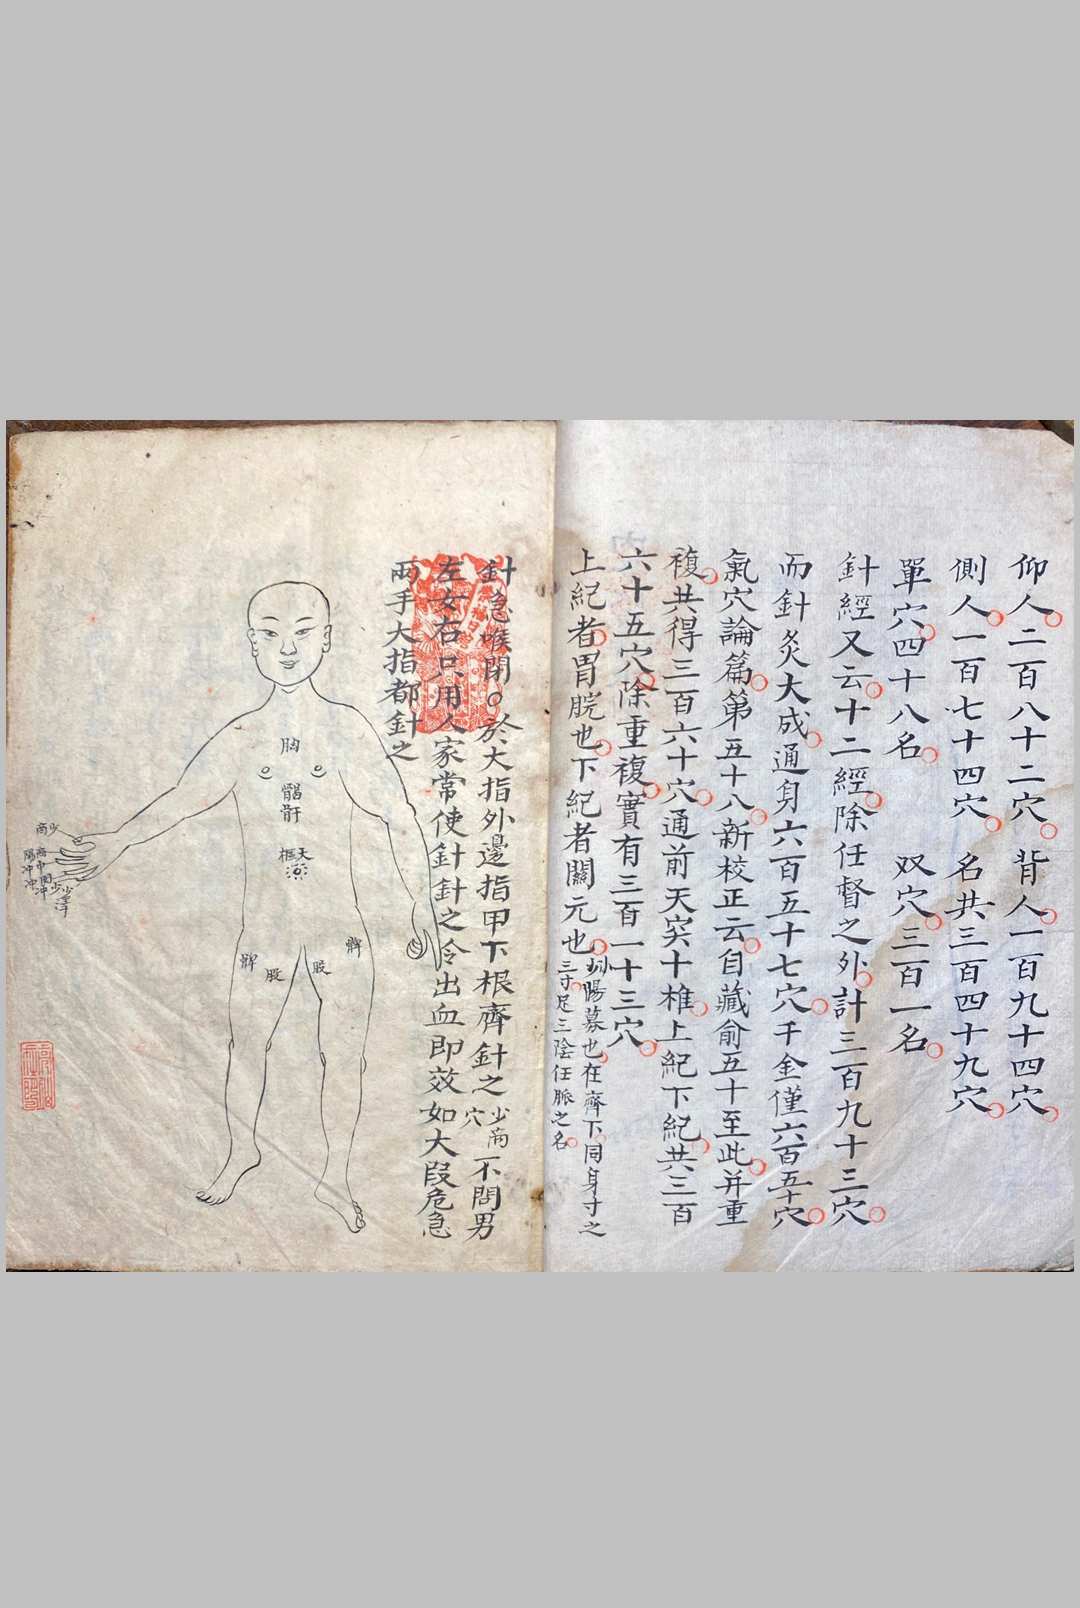 仰人二百八十二穴 背人一百九十四穴
側人一百七十四穴 名共三百四十九穴
單穴四十八名 双穴三百一名
針經又云十二經除任督之外計三百九十三穴
而針灸大成通身六百五十七穴千金僅六百五十穴
氣穴論篇第五十八新校正云自藏俞五十至此并重
複共得三百六十穴通前天突十椎上紀下紀共三百
六十五穴除重複實有三百一十三穴
上紀者胃脘也下紀者關元也
陽募也在齊下同身寸之
三寸足三陰任脈之名
針急喉閉〇於大指外邊指甲下根齊針之
少商
穴
不問男
左女右只用人家常使針針之令出血即效如大段危急
兩手大指都針之
胸
𩩲骬
天
樞
髀
股
股
髀
少商
中冲
少冲
少澤